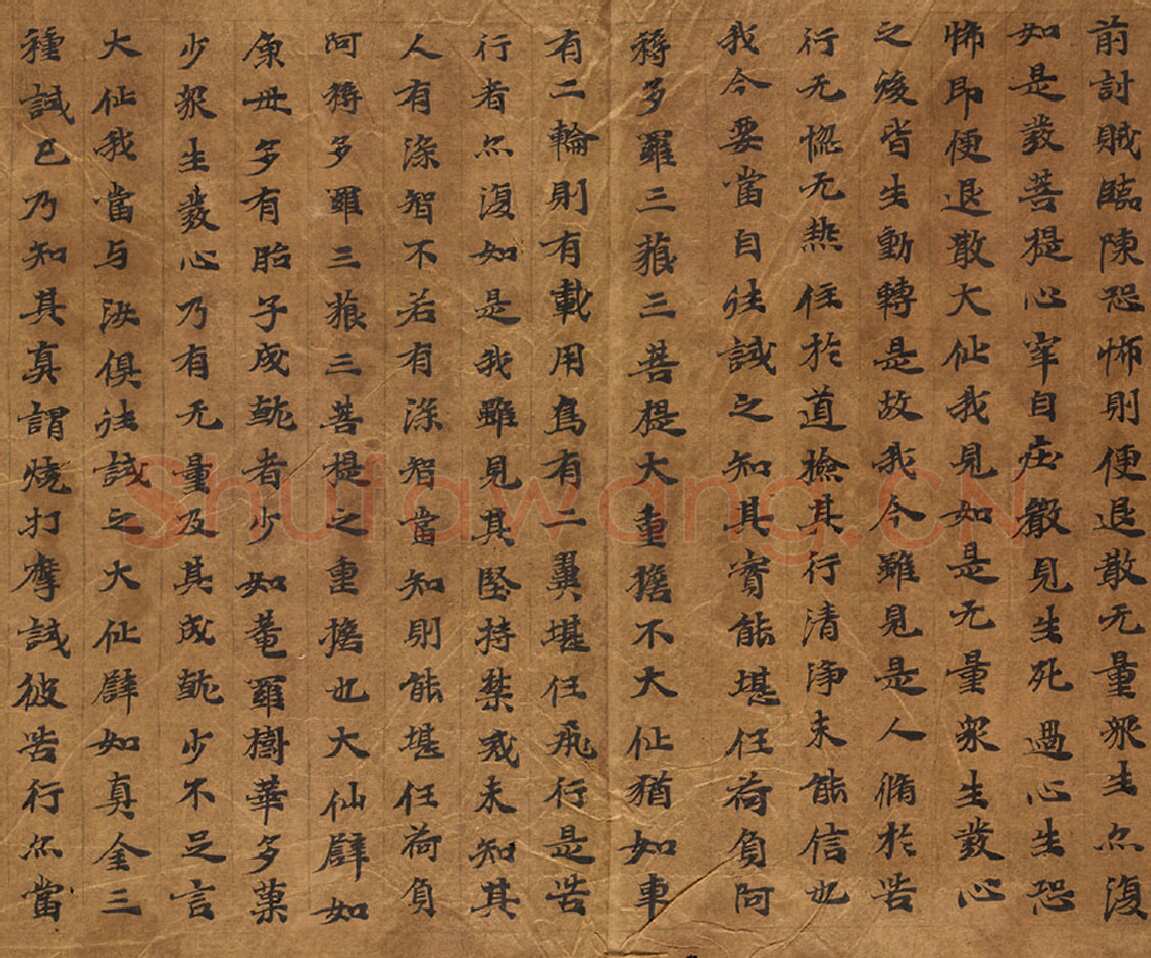 前討賊臨陳恐怖則便退散无量眾生亦復
如是發菩提心牢自庄嚴見生死過心生恐
怖即便退散大仙我見如是无量眾生發心
之後皆生動轉是故我今雖見是人脩於苦
行无惚无热住於道撿其行清淨未能信也
我今要當自往試之知其實能堪任荷負阿
耨多羅三藐三菩提大重擔不大仙猶如車
有二輪則有載用鳥有二翼堪任飛行是苦
行者亦復如是我雖見其堅持禁戒未知其
人有深智不若有深智當知則能堪任荷負
阿耨多羅三藐三菩提之重擔也大仙譬如
魚毋多有胎子成就者少如菴羅樹華多菓
少眾生發心乃有无量及其成就少不足言
大仙我當与汝俱往試之大仙譬如真金三
種試已乃知其真謂燒打摩試彼苦行亦當
shufawang.CN